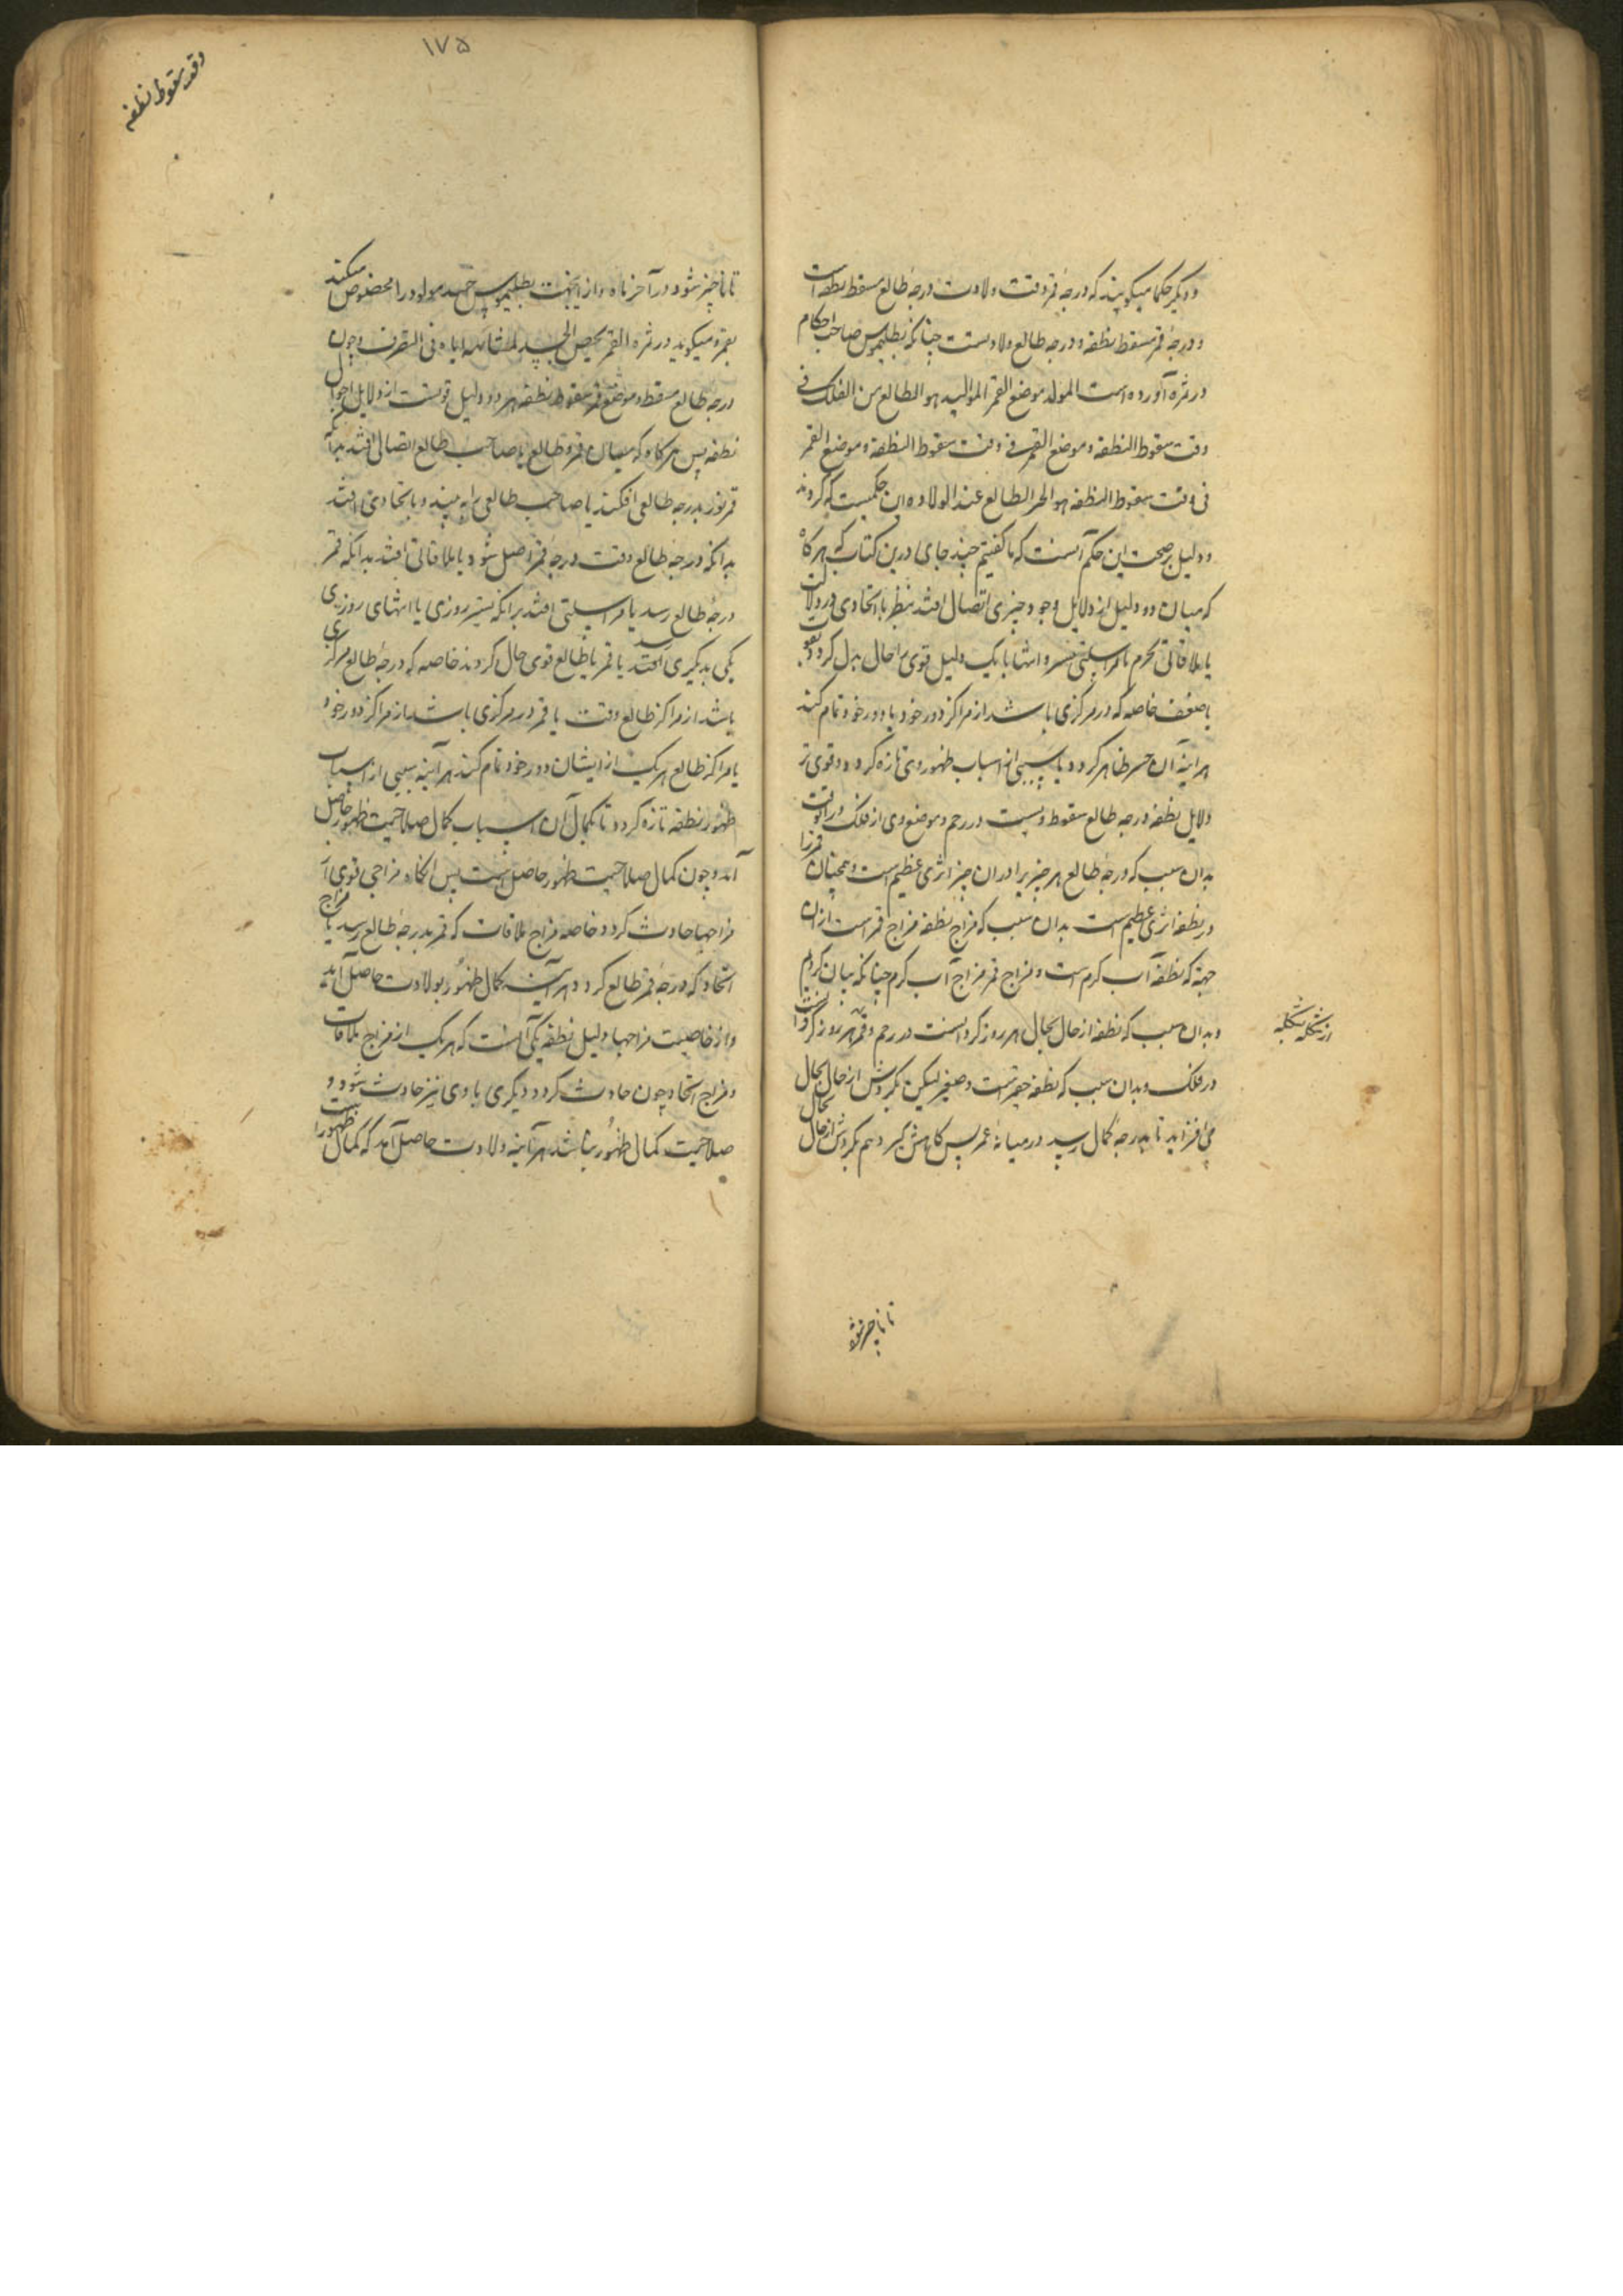 و دیگر حکما میکویند که درجهٔ قمر وقت ولادت درجهٔ طالع مسقط نطفه است
و درجهٔ قمر مسقط نطفه درجه طالع ولادتست چنانکه بطلیموس صاحب احکام
در ثمره آورده است المولد موضع القمر الموالید هو الطالع من الفلک فی
وقت سقوط النطفة و موضع القمر فی وقت سقوط النطفة و موضع القمر
فی وقت سقوط النطفه هو الطالع عند الولاده این حکمیست که کردند
و دلیل بر صحت این حکم آنست که ما کفتیم چند جای درین کتاب که هرکاه
که میان دو دلیل از دلایل وجود چیزی اتصال افتد بنظر یا اتحادی در ولادت
یا ملاقاتی بجرم یا مراسلتی بتسییر و انتها با یک دلیل قوی حال بدل کردد بقوت
یا ضعف خاصه که در مرکزی باشد از مراکز دور خود یا دور خود تمام کند
هر آینه آن چیز ظاهر کردد یا سببی از اسباب ظهور وی تازه کردد و قوی تر
دلایل نطفه درجه طالع سقوط ویست در رحم و موضع وی از فلک در آنوقت
بدان سبب که درجهٔ طالع هر چیز برا در آن چیز اثری عظیم است و همچنان قمر را
در نطفه اثری عظیم است بدان سبب که مزاج نطفه مزاج قمر است از آن
جهة که نطفه آب کرم است و مزاج قمر مزاج آب کرم چنانکه بیان کردیم
و بدان سبب که نطفه از حال بحال هر روز کردانست در رحم و قمر هر روز کردانست
در فلک و بدان سبب که نطفه حقیرست و صغیر لیکن بکردش از حال بحال
می افزاید تا بدرجه کمال رسد در میانهٔ عمر پس کاهش کیرد هم بکردش از حال بحال
از شکل بشکل
تا ناچیز شود
۱۷۵
وقت سقوط نطفه
تا ناچیز شود در آخر ماه و از این جهت بطلیموس جسد مولود را مخصوص میکند
بقمر و میکوید در ثمره القمر یخص الجسد لمشابهه ایاه فی التصرف و چون
درجهٔ طالع مسقط و موضع قمر سقوط نطفه هر دو دلیل قویست از دلایل احوال
نطفه پس هرکاه که میان قمر و طالع یا صاحب طالع اتصال افتد بدآنکه
قمر نور بدرجه طالعی افکند یا صاحب طالعی را به بیند و یا تحادی افتد
بدانکه درجهٔ طالع وقت درجهٔ قمر اصل شود یا ملاقاتی افتد بدانکه قمر
درجهٔ طالع رسد یا مراسلتی افتد بدانکه تسییر روزی یا انتهای روزی
یکی بدیکری رسد یا قمر با طالع قوی حال کردند خاصه که درجهٔ طالع مرکزی
باشد از مراکز طالع وقت یا قمر در مرکزی باشد از مراکز دور خود
یا مراکز طالع هر یک از ایشان دور خود تمام کند هر آینه سببی از اسباب
ظهور نطفه تازه کردد تا بکمال آن اسباب کمال صلاحیت ظهور حاصل
آید و چون کمال صلاحیت ظهور حاصل کشت پس انکاه مزاجی قوی از
مزاجها حادث کردد خاصه مزاج ملاقات که قمر بدرجهٔ طالع رسد یا مزاج
اتحاد که درجهٔ قمر طالع کردد هر آینه کمال ظهور بولادت حاصل آید
و از خاصیت مزاجها دلیل نطفه یکی آنست که هر یک از مزاج ملاقات
و مزاج اتحاد چون حادث کردد دیکری با وی نیز حادث شود و
صلاحیت کمال ظهور باشد هر آینه ولادت حاصل آمد که کمال ظهور است